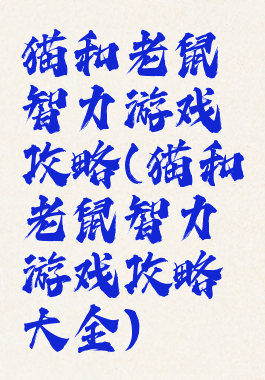 猫和老鼠
智力游戏
攻略(猫和
老鼠智力
游戏攻略
大全)